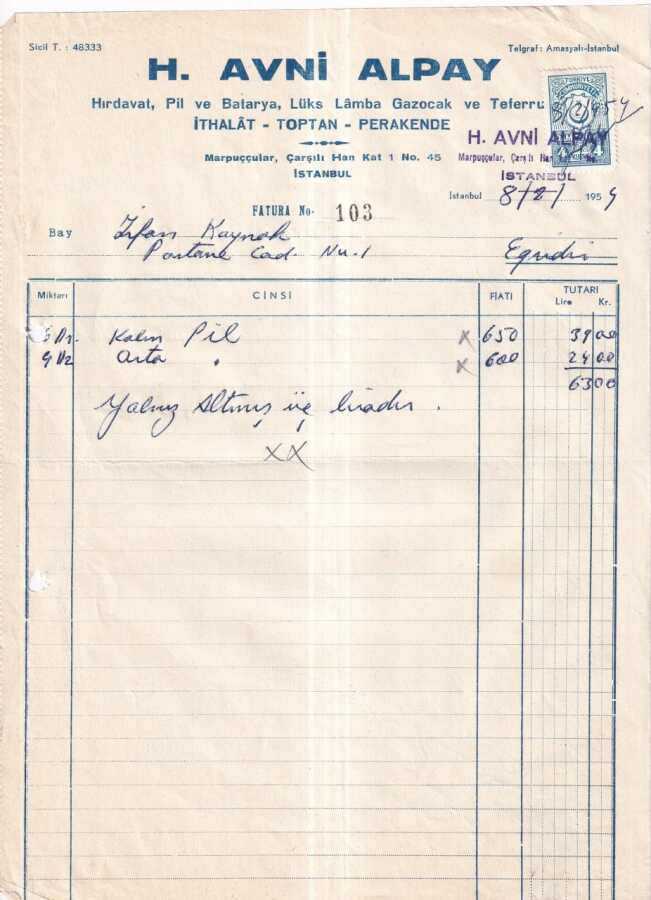 Sicil T. : 48333
Telgraf: Amasyalı-İstanbul
H. AVNİ ALPAY
Hırdavat, Pil ve Batarya, Lüks Lâmba Gazocak ve Teferru
İTHALÂT - TOPTAN - PERAKENDE
Marpuççular, Çarşılı Han Kat 1 No. 45
İSTANBUL
TÜRKİYE
CUMHURİYETİ
4 4
8/2/954
H. AVNİ ALPAY
Marpuççular, Çarşılı Han
İSTANBUL
İstanbul 8/2/ 1954
FATURA No. 103
Bay İrfan Kaynak
Postane Cad. Nu. 1 Eğridir
Miktarı CİNSİ FİATI TUTARI
Lire Kr.
6 Dz. Kalın Pil x 650 39 00
4 Dz Orta " x 600 24 00
63 00
Yalnız Altmış üç liradır.
XX